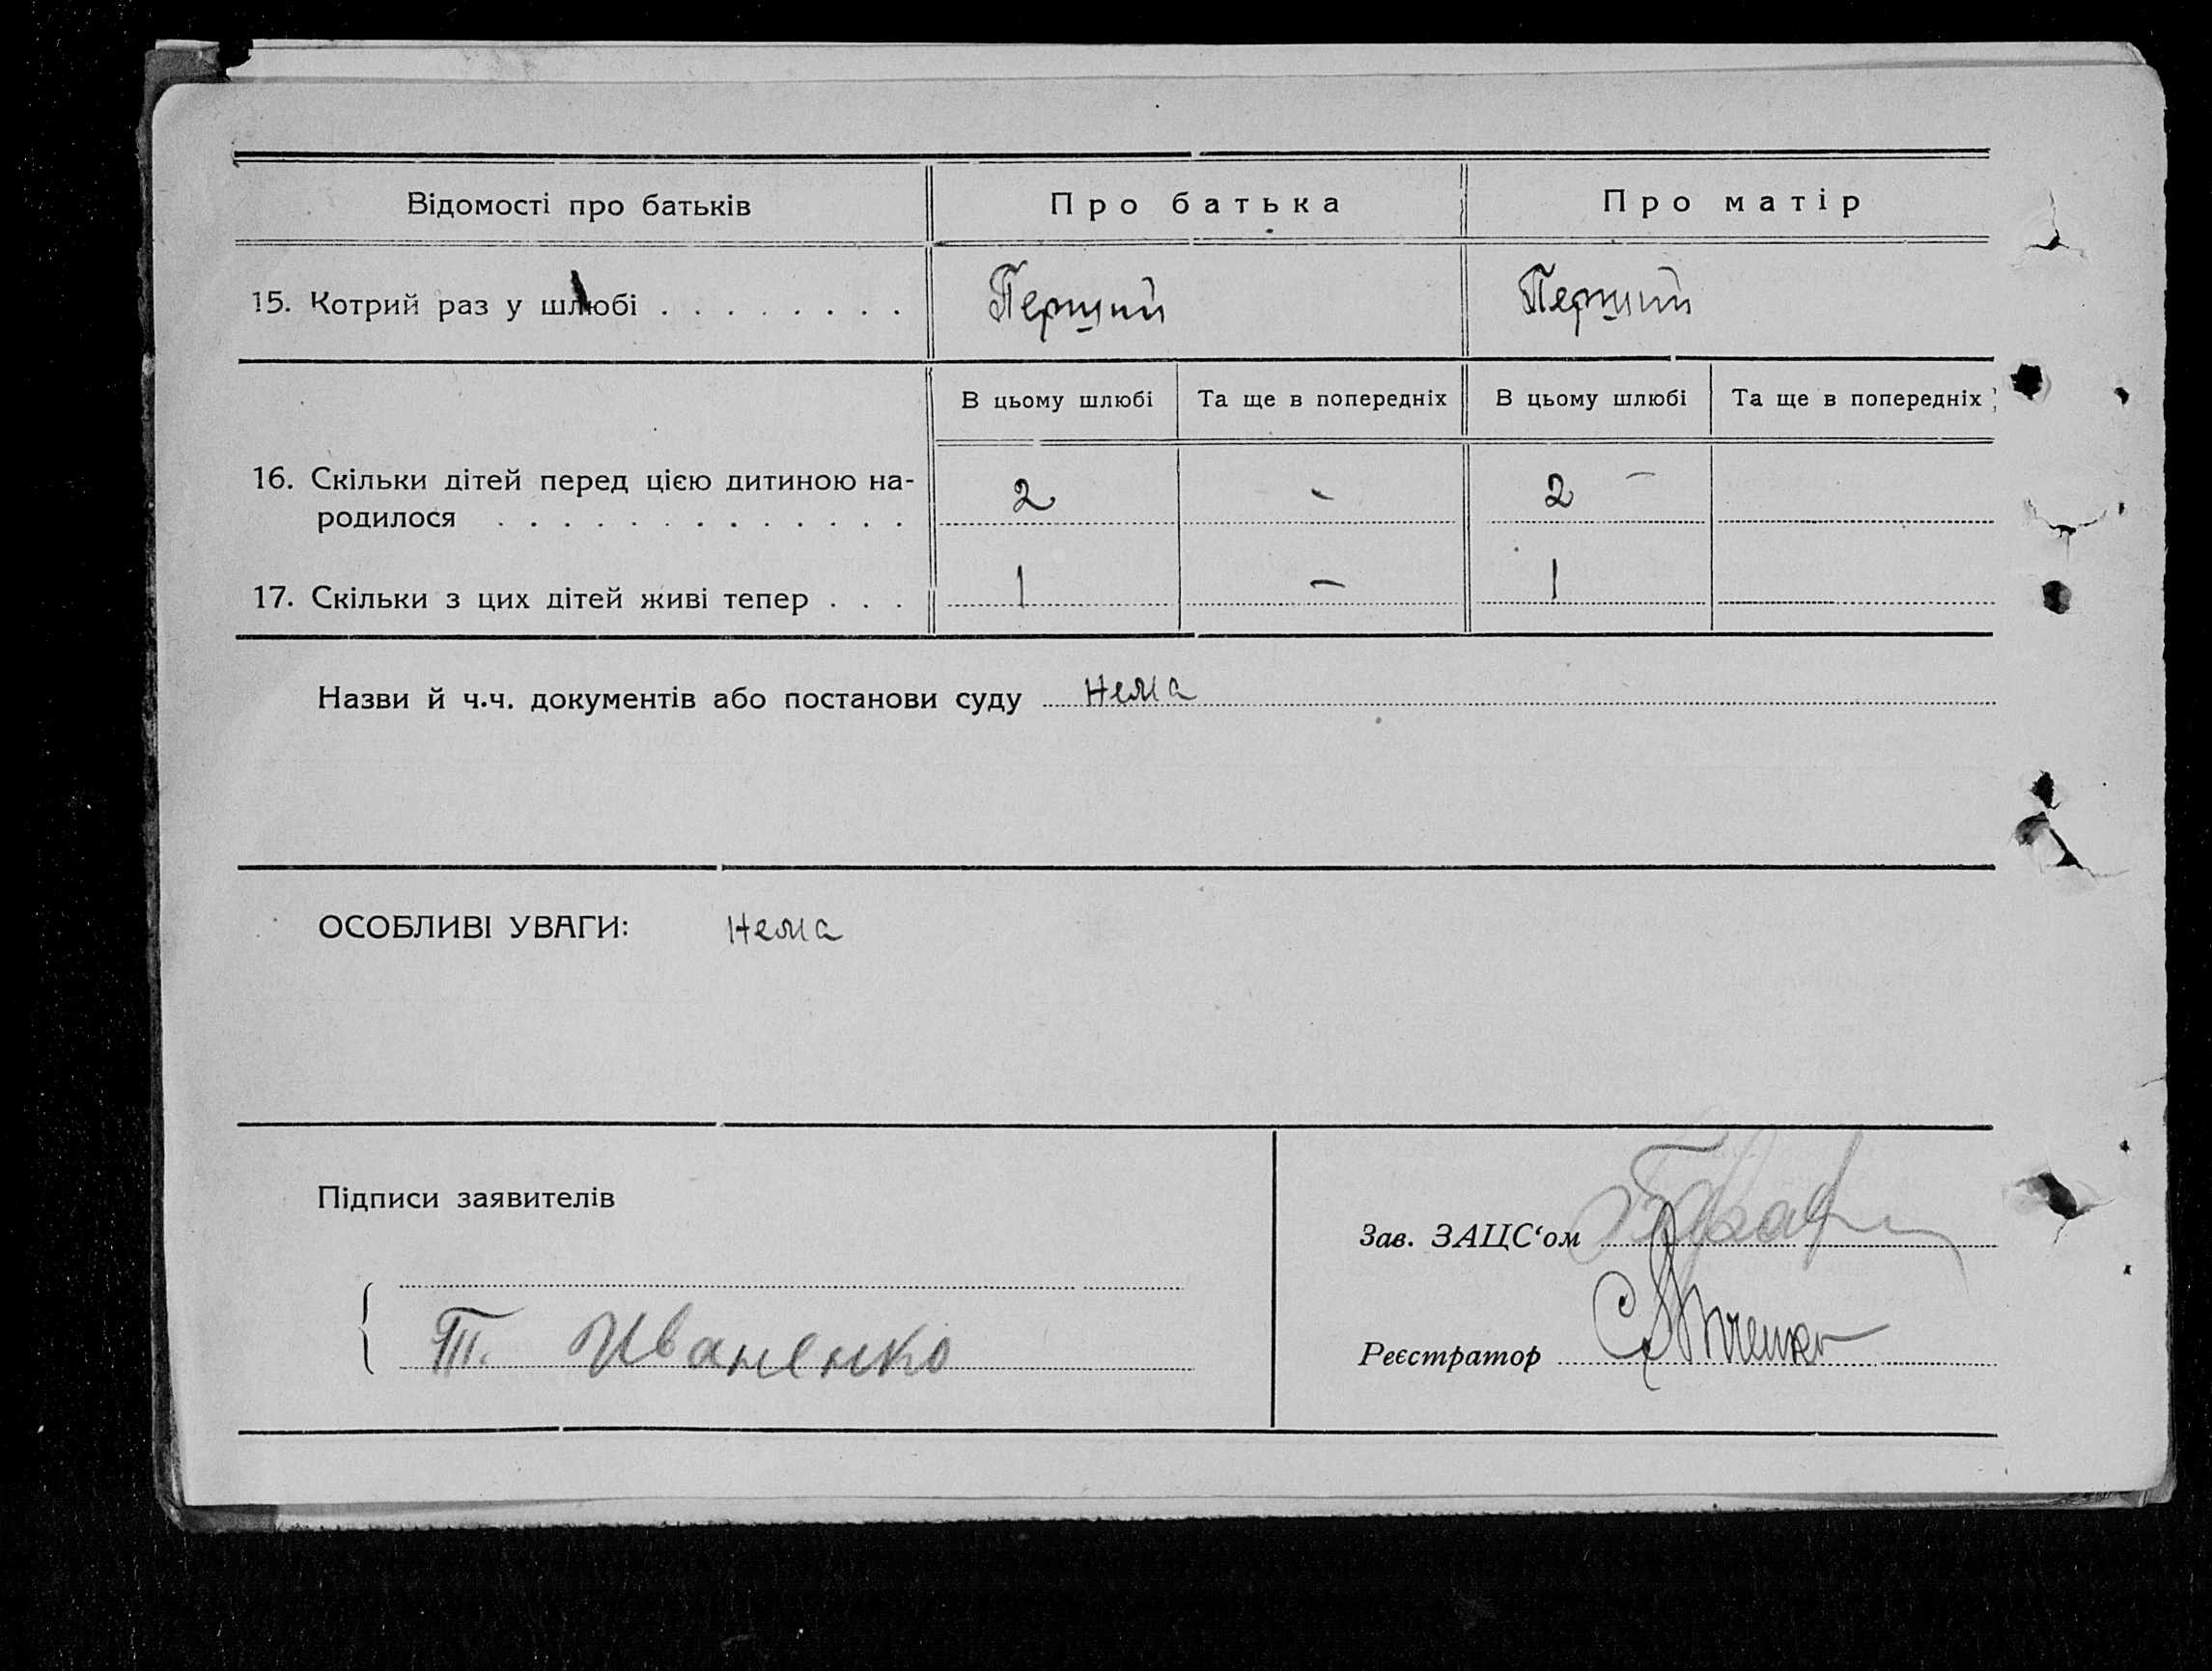 Відомості про батьків Про батька Про матір
15. Котрий раз у шлюбі . . . . . . . . Перший Перший
В цьому шлюбі Та ще в попередніх В цьому шлюбі Та ще в попередніх
16. Скільки дітей перед цією дитиною на-
родилося . . . . . . . . . . . . . 2 - 2 -
17. Скільки з цих дітей живі тепер . . . 1 - 1
Назви й ч.ч. документів або постанови суду нема
ОСОБЛИВІ УВАГИ: нема
Підписи заявителів
Зав. ЗАЦС‘ом
Т. Иваненко
Реєстратор